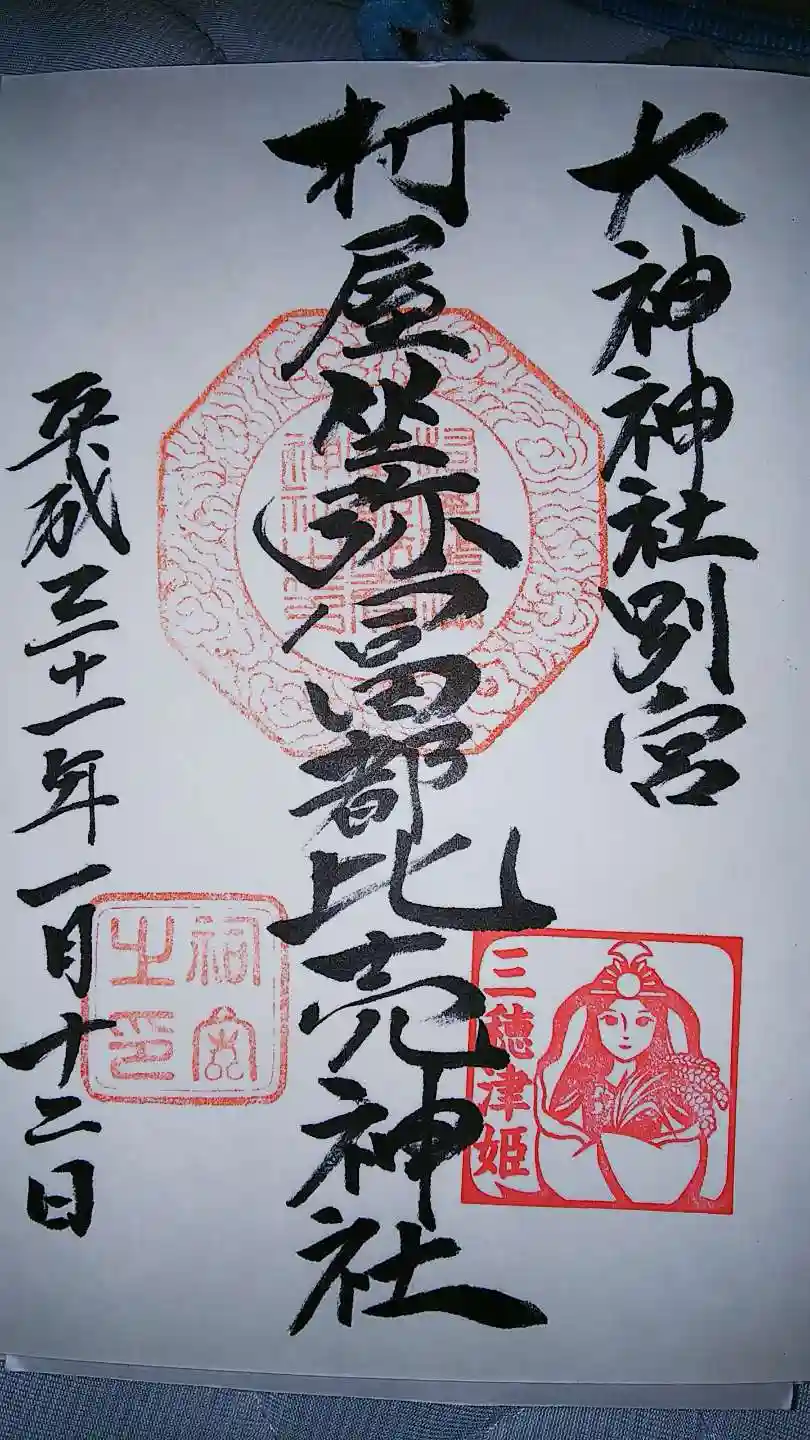 大神神社別宮
村屋坐弥冨都比売神社
平成三十一年一月十二日
三穂津姫
祠宮之印